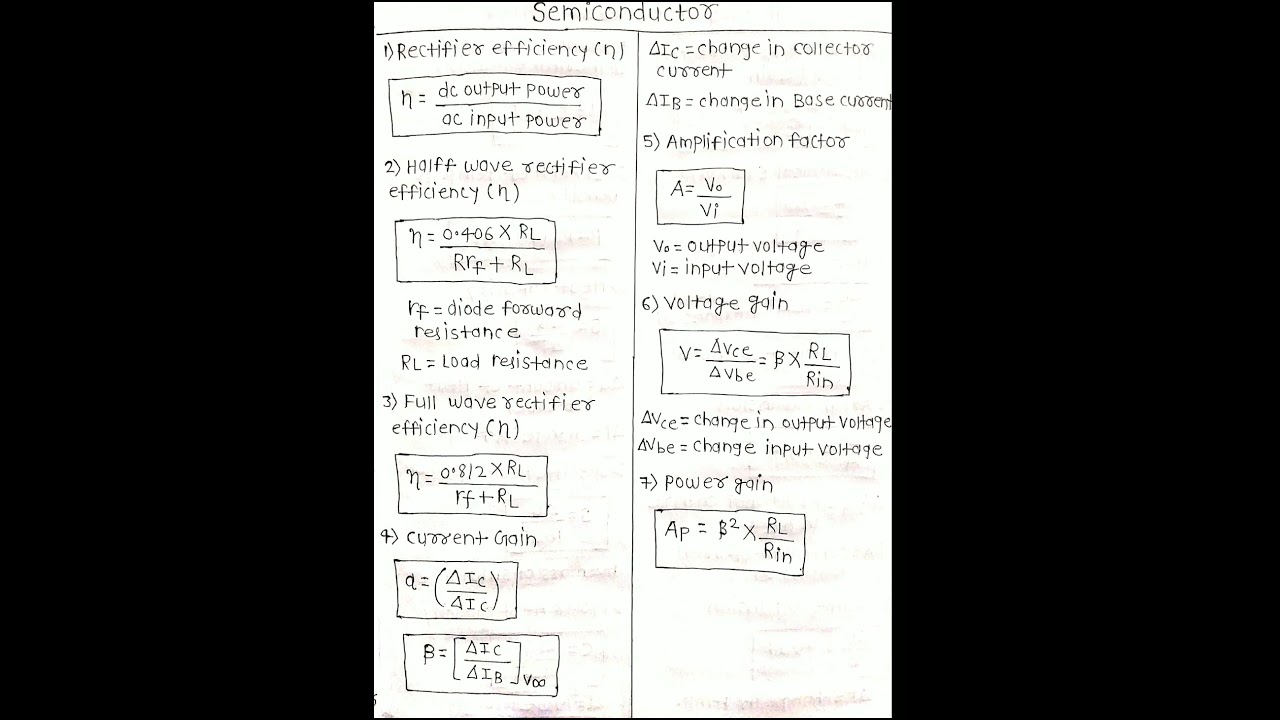 Semiconductor
1) Rectifier efficiency (η)
η = dc output power / ac input power
2) Halff wave rectifier
efficiency (η)
η = 0.406 × RL / Rrf + RL
rf = diode forward
resistance
RL = Load resistance
3) Full wave rectifier
efficiency (η)
η = 0.812 × RL / rf + RL
4) Current Gain
α = (ΔIC / ΔIC)
β = [ΔIC / ΔIB]
ΔIC = change in collector
current
ΔIB = change in Base current
5) Amplification factor
A = Vo / Vi
Vo = output voltage
Vi = input voltage
6) Voltage gain
V = ΔVce / ΔVbe = β × RL / Rin
ΔVce = change in output voltage
ΔVbe = change input voltage
7) Power gain
Ap = β² × RL / Rin